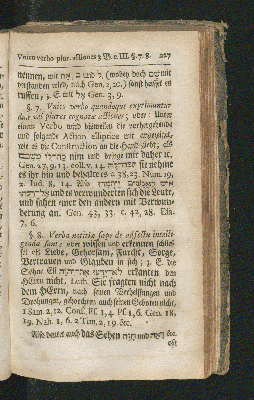 Unico verbo plur. actiones 3 B. c. III. §. 7. 8. 227
nennen, mit את und ב, (wobey doch שם mit
verstanden wird, nach Gen. 2, 20.) sonst heisset es
ruffen; z. E. mit אל Gen. 3, 9.
§. 7. Unico verbo quandoque exprimuntur
duæ vel plures cognatæ actiones; oder: Unter
einem Verbo wird bisweilen die vorhergehende
und folgende Action elliptice mit angezeigt,
wie es die Construction an die Hand giebt; als
nim und bringe mir daher ic.
Gen. 27, 9. 13. coll. v. 14. sie nahm
es ihr hin und behalte es 38, 23. Num. 19,
2. Jud. 8, 14. Also
und es verwunderten sich die Leute,
und sahen einer den andern mit Verwun-
derung an. Gen. 43, 33. c. 42, 28. Esa.
7, 6.
§. 8. Verba notitiæ sæpe de affectu intelli-
genda sunt; oder wissen und erkennen schlies-
set oft Liebe, Gehorsam, Furcht, Sorge,
Vertrauen und Glauben in sich; z. E. die
Söhne Eli erkanten den
HErrn nicht. Luth. Sie fragten nicht nach
dem HErrn, nach seinen Verheissungen und
Drohungen, gehorchten auch seinen Geboten nicht,
1 Sam. 2, 12. Conf. Ps. 1, 4. Ps. 1, 6. Gen. 18,
19. Nah. 1, 6. 2 Tim. 2, 19. &c.
Also deutet auch das Sehen ראה und חזה &c.
oft